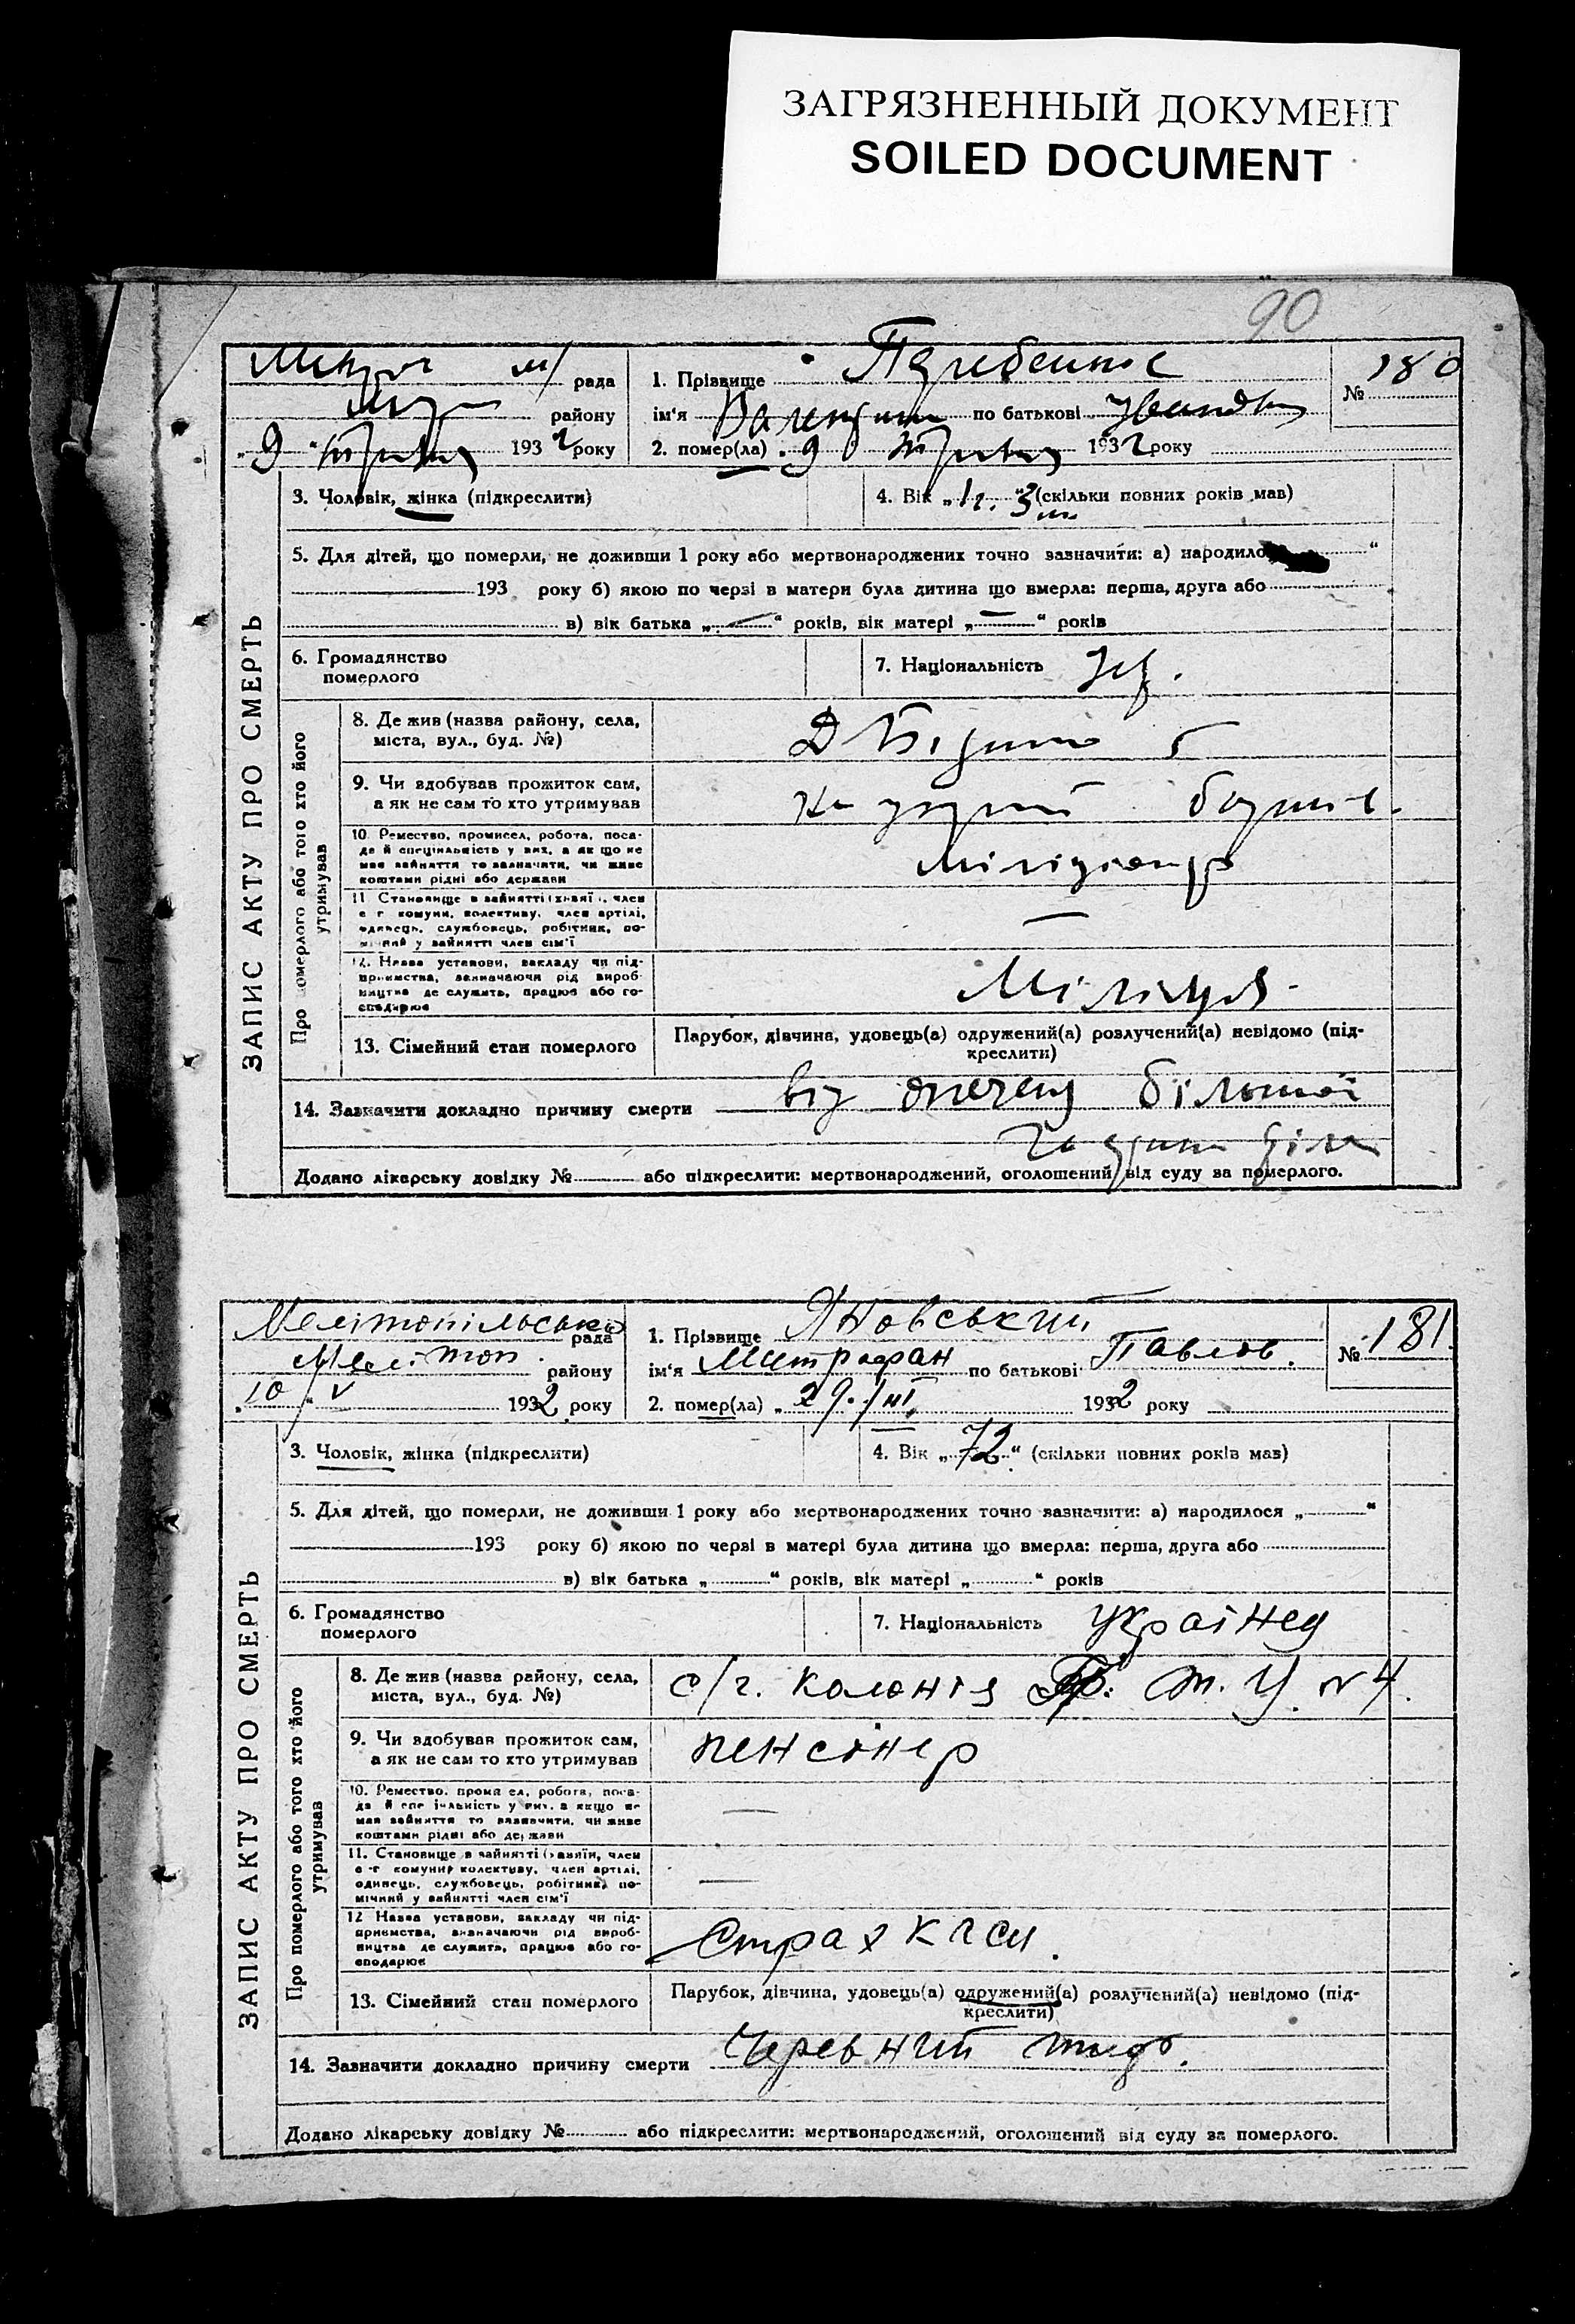 ЗАГРЯЗНЕННЫЙ ДОКУМЕНТ
SOILED DOCUMENT
90
ЗАПИС АКТУ ПРО СМЕРТЬ
рада
району
9 травня 1932 року
1. Прізвище
ім'я по батькові
2. помер(ла) „9 травня 1932 року
№ 180
3. Чоловік, жінка (підкреслити)
4. Вік „1 г. 3 м.“ (скільки повних років мав)
5. Для дітей, що померли, не доживши 1 року або мертвонароджених точно зазначити: а) народило “
193 року б) якою по черзі в матери була дитина що вмерла: перша, друга або
в) вік батька „—“ років, вік матері „—“ років
6. Громадянство
померлого
7. Національність
Про померлого або того хто його
утримував
8. Де жив (назва району, села,
міста, вул., буд. №)
9. Чи здобував прожиток сам,
а як не сам то хто утримував
10. Ремество, промисел, робота, поса-
да й спеціяльність у них, а як що не
мав зайняття то зазначити, чи живе
коштами рідні або держави
Міліціонер
11. Становище в зайнятті (хазяїн, член
с-г комуни, колективу, член артілі,
одинець, службовець, робітник, по-
мічний у зайнятті член сім'ї
—
12. Назва установи, закладу чи під-
приємства, зазначаючи рід вироб-
ництва де служить, працює або го-
сподарює
Міліція
13. Сімейний стан померлого
Парубок, дівчина, удовець(а) одружений(а) розлучений(а) невідомо (під-
креслити)
14. Зазначити докладно причину смерти від більшої
тіла
Додано лікарську довідку № або підкреслити: мертвонароджений, оголошений від суду за померлого.
ЗАПИС АКТУ ПРО СМЕРТЬ
Мелітопільська рада
МеліТоп. району
„10“ V 1932 року
1. Прізвище Яновський
ім'я Митрофан по батькові Павлов.
2. помер(ла) „29./III 1932 року
№ 181.
3. Чоловік, жінка (підкреслити)
4. Вік „72“ (скільки повних років мав)
5. Для дітей, що померли, не доживши 1 року або мертвонароджених точно зазначити: а) народилося „“
193 року б) якою по черзі в матері була дитина що вмерла: перша, друга або
в) вік батька „“ років, вік матері „“ років
6. Громадянство
померлого
7. Національність українец
Про померлого або того хто його
утримував
8. Де жив (назва району, села,
міста, вул., буд. №)
с/г. колонія т. У. №4.
9. Чи здобував прожиток сам,
а як не сам то хто утримував
пенсінер
10. Ремество, промисел, робота, поса-
да й спеціяльність у них, а якщо не
мав зайняття то зазначити, чи живе
коштами рідні або держави
—
11. Становище в зайнятті (хазяїн, член
с-г комуни колективу, член артілі,
одинець, службовець, робітник, по-
мічний у зайнятті член сім'ї
—
12 Назва установи, закладу чи під-
приємства, зазначаючи рід вироб-
ництва де служить, працює або го-
сподарює
Страхкаси.
13. Сімейний стан померлого
Парубок, дівчина, удовець(а) одружений(а) розлучений(а) невідомо (під-
креслити)
14. Зазначити докладно причину смерти Черевний тиф.
Додано лікарську довідку № або підкреслити: мертвонароджений, оголошений від суду за померлого.